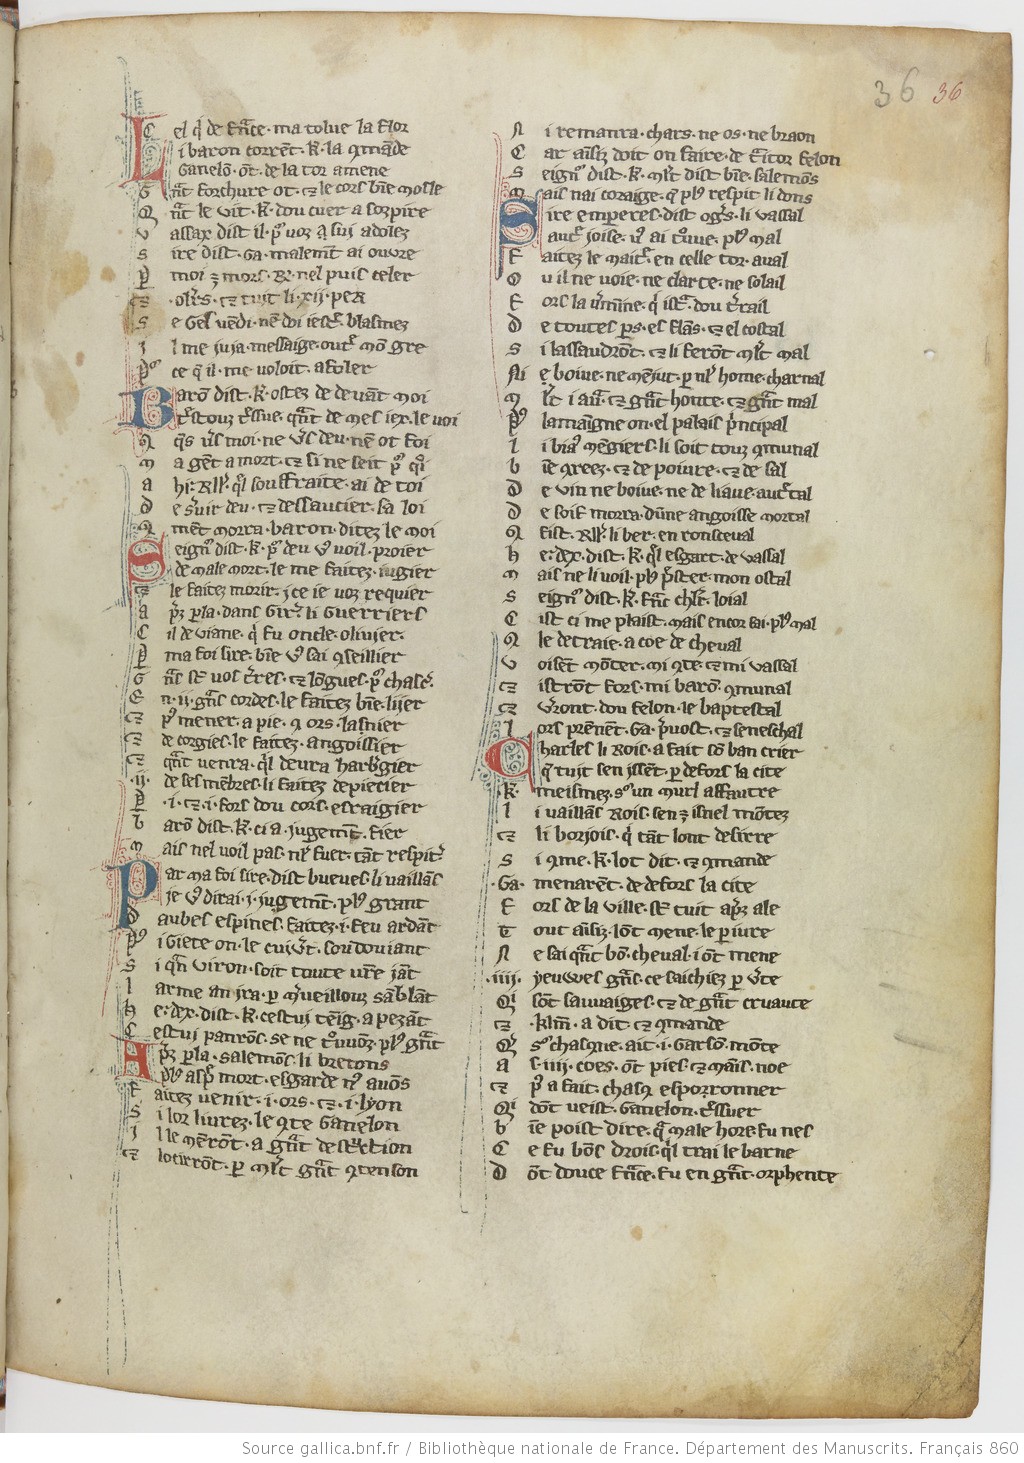 36 36
C el q̓ de frãce · ma tolue la flor
L i baron corrẽt · K · la ꝯmãde
Ganelõ · õt · de la tor amene
G rãt forchure ot · ⁊ le cors bñe mosle
Q ñt le vit · K · dou cuer a sozpire
V assax dist il · p̱ voz
S ire dist · Ga · malemt̃ ai ouvre
P moi
⁊ · olr̃s · ⁊ tuit li · xij · per
S e Gel̃ vẽdi · nẽ doi iestr̃ · blasmez
I l me juja · messaige · outr̃ · mõ gre
P ce q̓ il · me voloit · afoler
B arõ dist · K · ostez de devãt moi
de mes iex · le voi
Q ne
M a gẽt a mort · ⁊ si ne seit
A hi · Roll̃ · q̃l souffraite · ai de toi
D e s̃uir deu · ⁊ dessaucier · sa loi
Q morra · baron · ditez le moi
S eign̓ dist · K · p̱ deu v̾ voil · proier
de male mort · le me faitez · iugier
⁊ le faitez morir · ice ie voz requier
A p̃z p̱la · dans Gir̃ · li Guerriers
C il de viane · q̓ fu oncle · olivier ·
P ma foi sire · bñe v̾ sai ꝯseillier
G
E n · ij · Gñs cordes · le faitez bñe · lier
⁊ p̾ mener · a pie · ꝯ ors · lasnier
⁊ de corgies · le faitez · angoissier
⁊ qñt venra · q̃l devra harb̾gier
· ij · de ses mẽbres · li faitez depiecier
P · i · ⁊ · i · fors dou cors · esraigier
B arõ dist · K · ci a jugemt̃ · fier
M ais nel voil pas · tãt respit̾
P ar ma foi sire · dist bueves · li vaillãs
je v̾ dirai · j · jugemt̃ · pl̾ grant
D aubes espines · faitez · i · feu ardãt
P̾ i Giete on · le cuiv̾t · soudoiant
S i qñ viron · soit toute
L arme an ira · p̱ m̾veillouz sãblãt
H e · dex · dist · K · cestui tẽig · a pezãt
C estui parrõs · se ne
A p̾z p̱la · salemõs · li bretons
pl̾ asp̾ mort · esgarde n̾ avõs
F aitez venir · i · ors · ⁊ · i · lyon
S i lor livrez · le ꝯte Ganelon
I l le mẽrõt · a gñt
⁊ p̱ ml̃t gñt ꝯtenson
N i remanra · chars · ne os · ne braon
C ar aĩsiz doit on faire · de t̾itor felon
S eign̓ dist · K · ml̃t dist bñe · salemõs
M ais nai coraige · q̓ pl̾ respit li dons
S ire emperes · dist og̾s · li vassal
autr̃ joise · v̾ ai t̾ove · pl̾ mal
F aitez le maitr̃ · en celle tor · aval
O u il ne voie · ne clarte · ne solail
F ors la
D e toutes p̱s · es flãs · ⁊ el costal
S i lassaudrõt · ⁊ li ferõt ml̃t mal
Ni e boive · ne mẽjut · p̱ nl̾ home · charnal
M l̃t i avr̃ · ⁊ gñt hõute · ⁊ gñt mal
P̾ lamaigne on · el palais p̾ncipal
L i bia̾ mẽgiers · li soit touz ꝯmunal
B ñe ꝯreez · ⁊ de poivre · ⁊ de sal
D e vin ne boive · ne de liaue · autr̃tal
D e soif morra · dũne angoisse mortal
Q fist · Roll̃ · li ber · en ronseval
H e · dex · dist · K · q̃l esgart · de vassal
M ais ne li voil · pl̾ p̾ster · mon ostal
S eign̓ · dist · K · frãc chlr̃ · loial
C ist ci me plaist · mais encor sai · pl̾ mal
Q le detraie · a coe de cheval
V oisẽt mõter · mi ꝯte · ⁊ mi vassal
⁊ istrõt fors · mi barõ · ꝯmunal
⁊ v̾ront · dou felon · le baptestal
L ors prẽnẽt · Ga · p̾vost · ⁊ seneschal
C harles li rois · a fait sõ ban crier
q̓ tuit sen issẽt · p̱ defors la cite
· K · meismez · s̾ un murl affautre
L i vaillãs rois · sen ⁊ isnel mõtez
⁊ li borjois · q̓ tãt lont desirre
S i ꝯme · K · lot dit · ⁊ ꝯmande
· Ga · menarẽt · de defors la cite
F ors de la ville · st̃ tuit ap̾z ale
T out aĩsiz · lõt mene · le p̱iure
N e sai qñt bõ · cheval · i õt mene
· iiij · yeuwes gñs · ce saichiez p̱ v̾te
Qi sõt sauvaiges · ⁊ de gñt cruaute
⁊ · Klm̃ · a dit · ⁊ ꝯmande
Q̾ s̾ chasqne · ait · i · garsõ · mõte
A s · iiij · coes · õt pies · ⁊ mãis · noe
⁊ p̾ a fait · chasq̃ esporonner
Qi dõt veist · Ganelon · t̾ssuer
B ñe poist dire · q̓ male hore · fu nes
C e fu bõs drois · q̃l trai le barne
D õt douce frãce · fu en gñt · orphente
Source gallica.bnf.fr / Bibliothèque nationale de France. Département des Manuscrits. Français 860